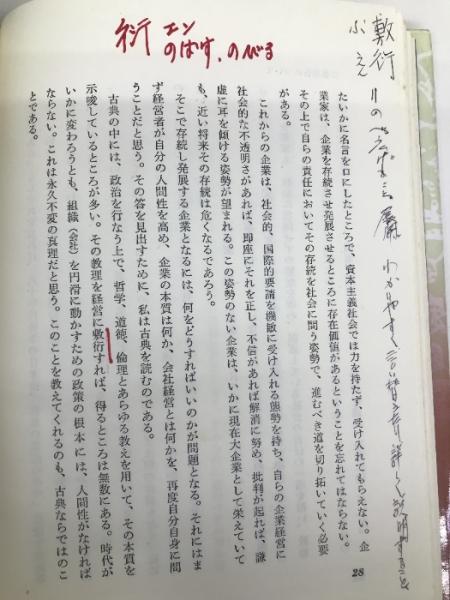 敷衍
ふえん
衍 エン
のばす、のびる
たいかに名言を口にしたところで、資本主義社会では力を持たず、受け入れてもらえない。企
業家は、企業を存続させ発展させるところに存在価値があるということを忘れてはならない。
その上で自らの責任においてその存続を社会に問う姿勢で、進むべき道を切り拓いていく必要
がある。
これからの企業は、社会的、国際的要請を機敏に受け入れる態勢を持ち、自らの企業経営に
社会的な不透明さがあれば、即座にそれを正し、不信があれば解消に努め、批判が起れば、謙
虚に耳を傾ける姿勢が望まれる。この姿勢のない企業は、いかに現在大企業として栄えていて
も、近い将来その存続は危くなるであろう。
そこで存続し発展する企業となるには、何をどうすればいいのかが問題となる。それにはま
ず経営者が自分の人間性を高め、企業の本質は何か、会社経営とは何かを、再度自分自身に問
うことだと思う。その答を見出すために、私は古典を読むのである。
古典の中には、政治を行なう上で、哲学、道徳、倫理とあらゆる教えを用いて、その本質を
示唆しているところが多い。その教理を経営に敷衍すれば、得るところは無数にある。時代が
いかに変わろうとも、組織（会社）を円滑に動かすための政策の根本には、人間性がなければ
ならない。これは永久不変の真理だと思う。このことを教えてくれるのも、古典ならではのこ
とである。
28